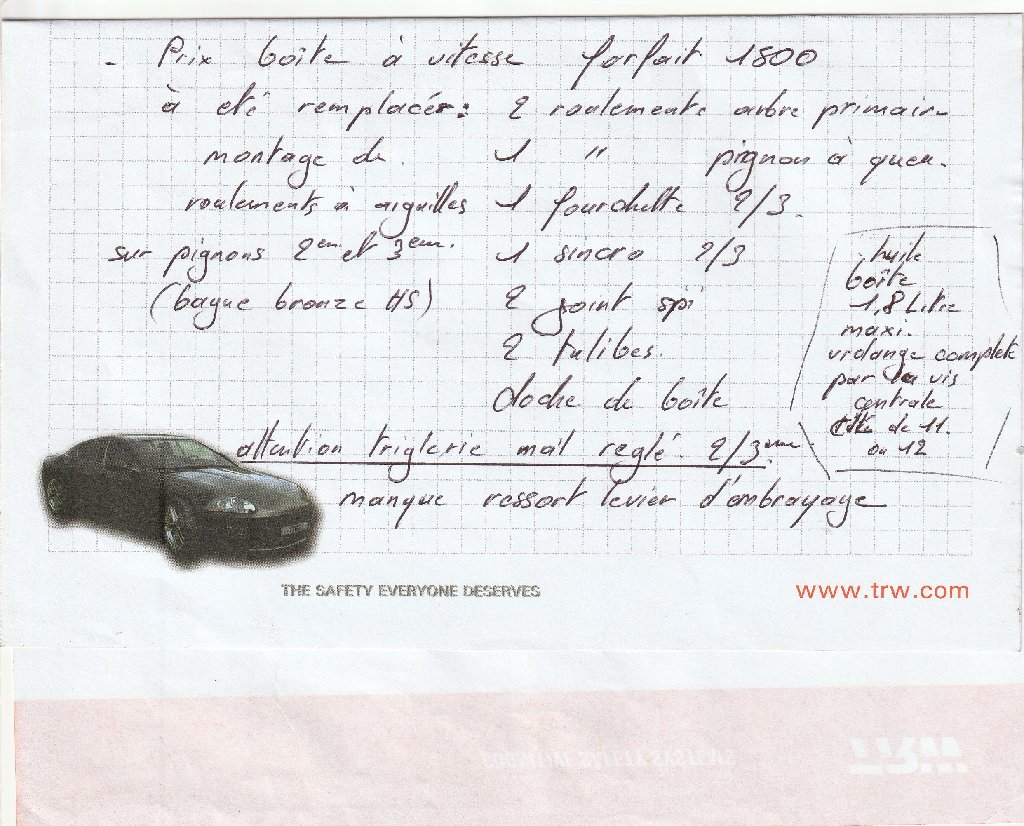 - Prix boîte à vitesse forfait 1800
à eté remplacér: 2 roulements arbre primair
montage de. 1 " pignon à queu.
roulements à aiguilles 1 fourchette 2/3.
sur pignons 2em et 3em. 1 sincro 2/3
(bague bronze HS) 2 joint spi
2 tulibes.
cloche de boîte
huile
boîte
1,8 Litre
maxi.
vidange complete
par la vis
centrale
de 11.
ou 12
attention triglerie mal reglé. 2/3em
manque ressort levier d'embrayage
THE SAFETY EVERYONE DESERVES
www.trw.com